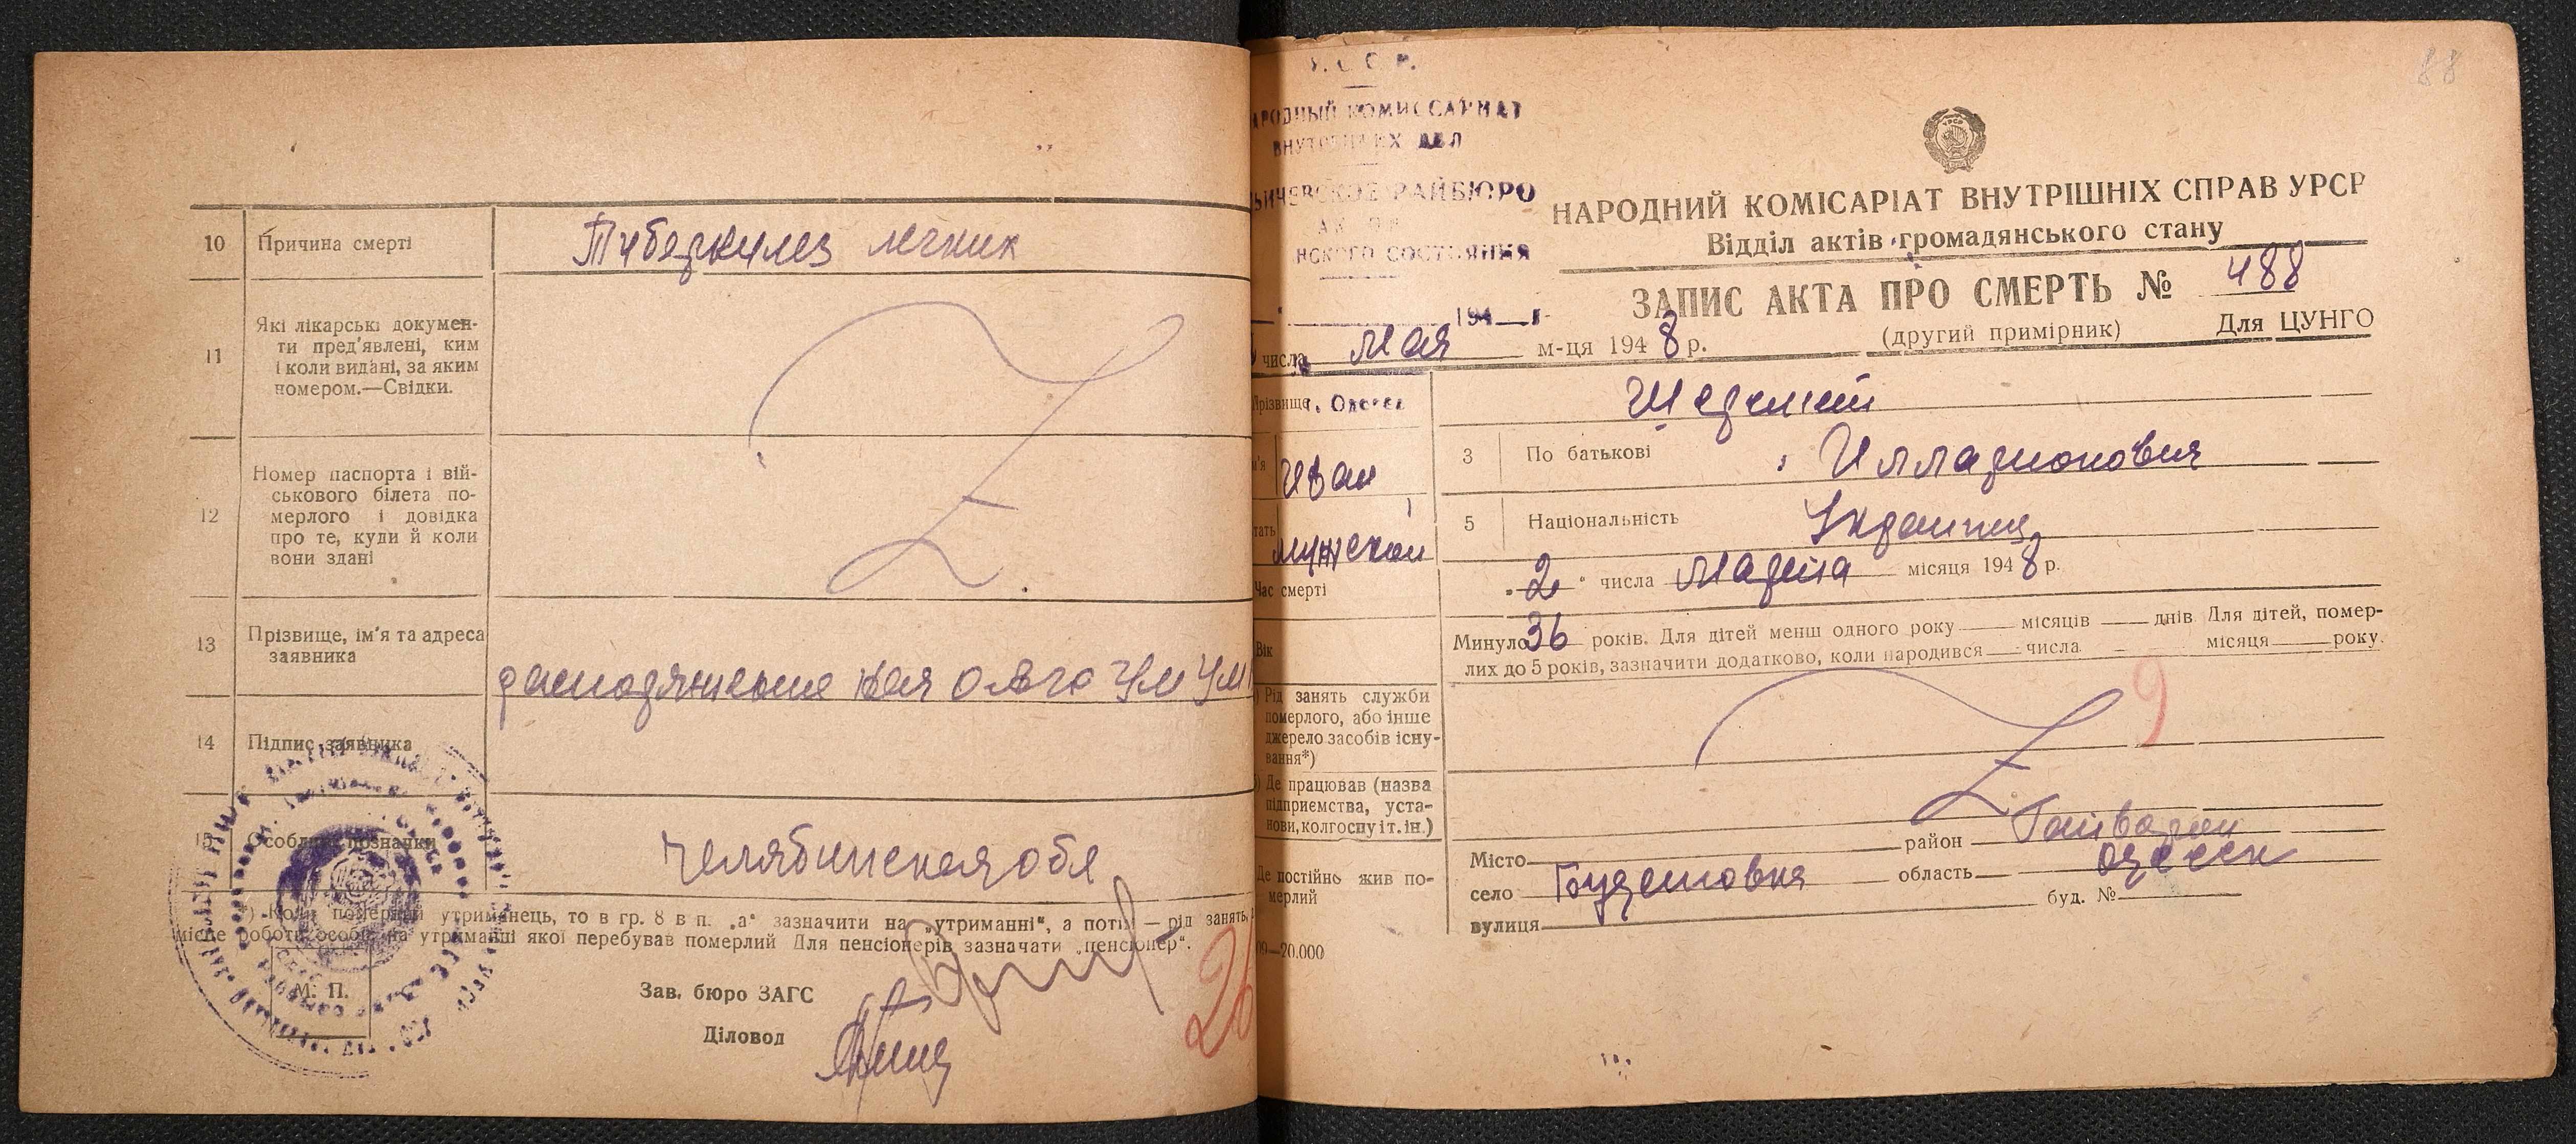 10 Причина смерти Туберкулез легких
11 Які лікарські докумен-
ти пред'явлені, ким
і коли видані, за яким
номером.—Свідки.
12 Номер паспорта і вій-
ськового білета по-
мерлого і довідка
про те, куди й коли
вони здані
13 Прізвище, ім'я та адреса
заявника
распоряжение
14 Підпис заявника
15 Особливі позначки
Челябинская обл
*) Коли померлий утриманець, то в гр. 8 в п. „а" зазначити на „утриманні", а потім — рід занять,
місце роботи особи, на утриманні якої перебував померлий Для пенсіонерів зазначати „пенсіонер".
М. П.
Зав. бюро ЗАГС
Діловод
26
88
У. С. С. Р.
НАРОДНЫЙ КОМИССАРИАТ
ВНУТРЕННИХ ДЕЛ
РАЙБЮРО
СОСТОЯНИЯ
194 г.
г. Одесса
НАРОДНИЙ КОМІСАРІАТ ВНУТРІШНІХ СПРАВ УРСР
Відділ актів громадянського стану
ЗАПИС АКТА ПРО СМЕРТЬ № 488
(другий примірник) Для ЦУНГО
числа мая м-ця 1948 р.
Прізвище
Иван
3 По батькові Илларионович
мужской
5 Національність Украинец
Час смерті 2 числа Марта місяця 1948 р.
Вік Минуло 36 років. Для дітей менш одного року місяців днів Для дітей, помер-
лих до 5 років, зазначити додатково, коли народився числа місяця року.
Рід занять служби
померлого, або інше
джерело засобів існу-
вання*)
9
Де працював (назва
підприємства, уста-
нови, колгоспу і т. ін.)
Де постійно жив по-
мерлий
Місто район Гайворон
село область Одесск
вулиця буд. №
20.000